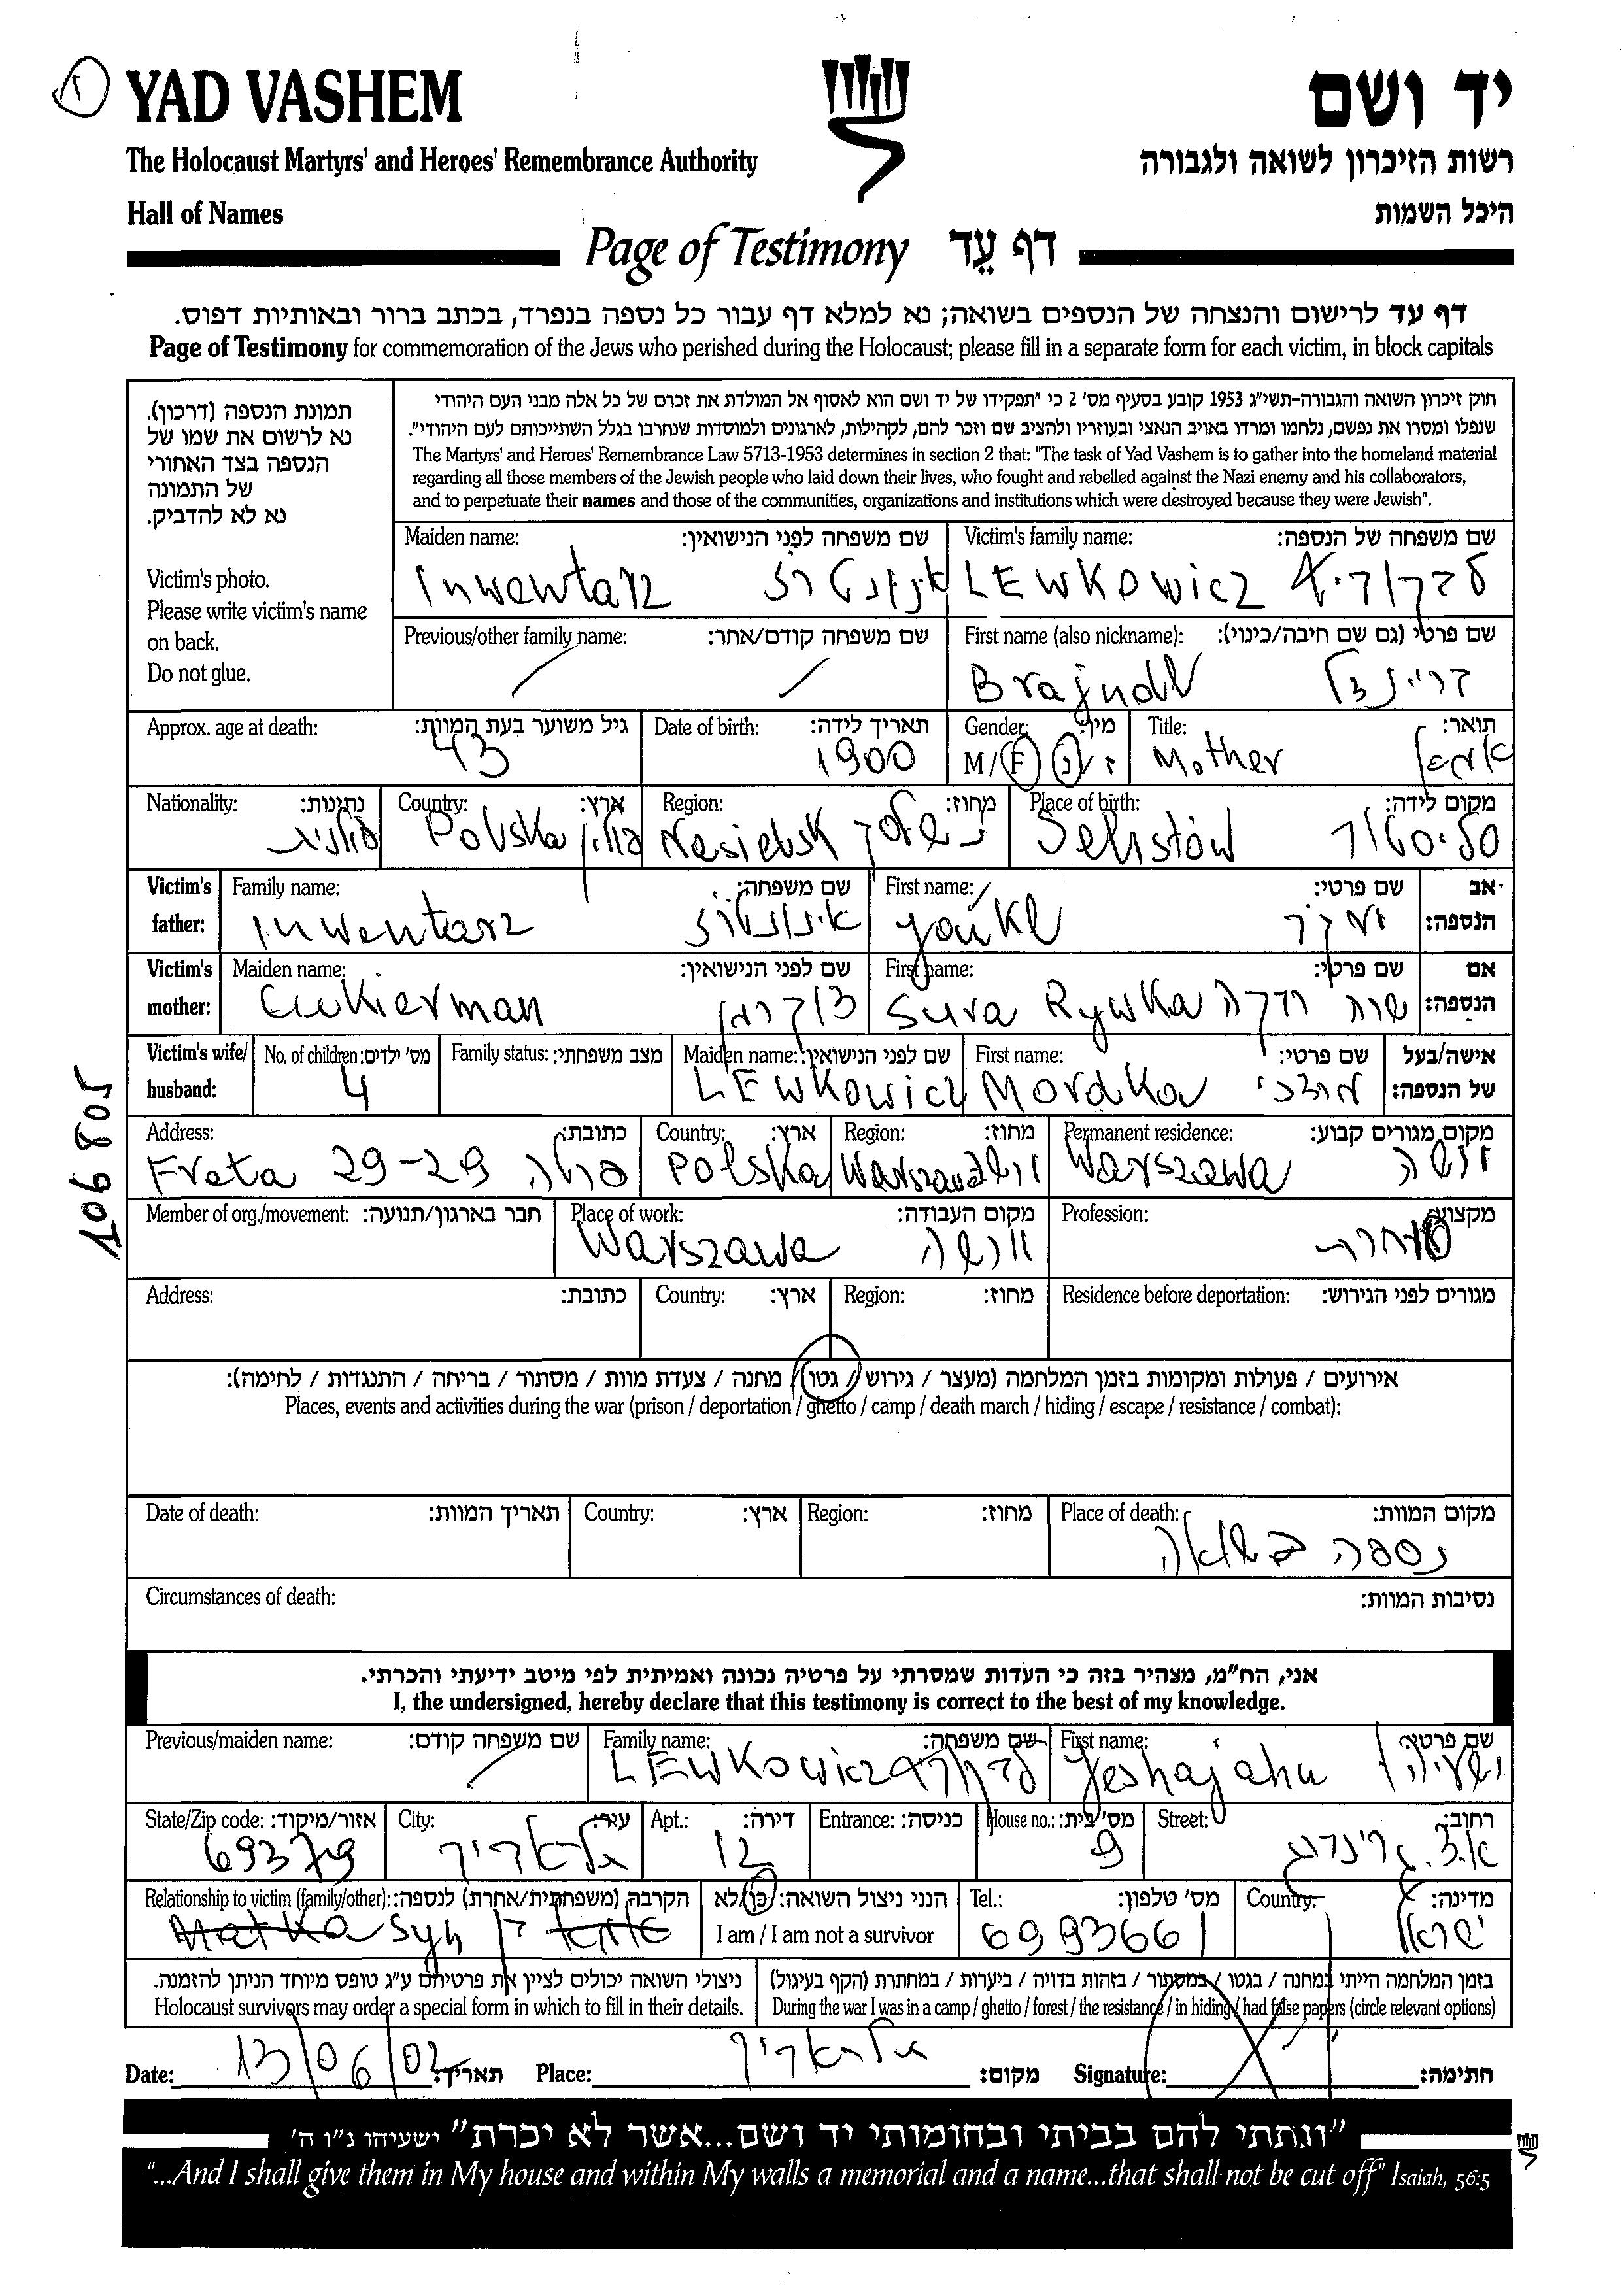 YAD VASHEM
יד ושם
The Holocaust Martyrs' and Heroes' Remembrance Authority
רשות הזיכרון לשואה ולגבורה
Hall of Names
היכל השמות
Page of Testimony דף עֵד
דף עד לרישום והנצחה של הנספים בשואה; נא למלא דף עבור כל נספה בנפרד, בכתב ברור ובאותיות דפוס.
Page of Testimony for commemoration of the Jews who perished during the Holocaust; please fill in a separate form for each victim, in block capitals
תמונת הנספה (דרכון).
נא לרשום את שמו של
הנספה בצד האחורי
של התמונה
נא לא להדביק.
Victim's photo.
Please write victim's name
on back.
Do not glue.
חוק זיכרון השואה והגבורה-תשי"ג 1953 קובע בסעיף מס' 2 כי "תפקידו של יד ושם הוא לאסוף אל המולדת את זכרם של כל אלה מבני העם היהודי
שנפלו ומסרו את נפשם, נלחמו ומרדו באויב הנאצי ובעוזריו ולהציב שם וזכר להם, לקהילות, לארגונים ולמוסדות שנחרבו בגלל השתייכותם לעם היהודי".
The Martyrs' and Heroes' Remembrance Law 5713-1953 determines in section 2 that: "The task of Yad Vashem is to gather into the homeland material
regarding all those members of the Jewish people who laid down their lives, who fought and rebelled against the Nazi enemy and his collaborators,
and to perpetuate their names and those of the communities, organizations and institutions which were destroyed because they were Jewish".
Maiden name: שם משפחה לפני הנישואין: Victim's family name: שם משפחה של הנספה:
Inwentarz אינוונטרז LEWKOWICZ לבקוביץ
Previous/other family name: שם משפחה קודם/אחר: First name (also nickname): שם פרטי (גם שם חיבה/כינוי):
Brajndl בריינדל
Approx. age at death: גיל משוער בעת המוות: Date of birth: תאריך לידה: Gender: מין: Title: תואר:
43 1900 M / F ז / נ Mother אמא
Nationality: נתינות: Country: ארץ: Region: מחוז: Place of birth: מקום לידה:
פולנית Polska פולין Nasielsk נשלסק סליסטוב
Victim's father: Family name: שם משפחה: First name: שם פרטי: אב הנספה:
Inwentarz Jankl
Victim's mother: Maiden name: שם לפני הנישואין: First name: שם פרטי: אם הנספה:
Cukierman צוקרמן Sura Rywka שרה רבקה
Victim's wife/ husband: No. of children: מס' ילדים: Family status: מצב משפחתי: Maiden name: שם לפני הנישואין: First name: שם פרטי: אישה/בעל של הנספה:
4 LEWKOWICZ Mordka מרדכי
Address: כתובת: Country: ארץ: Region: מחוז: Permanent residence: מקום מגורים קבוע:
Freta 29-29 פרטה Polska Warszawa ורשה Warszawa ורשה
Member of org./movement: חבר בארגון/תנועה: Place of work: מקום העבודה: Profession: מקצוע:
Warszawa ורשה סוחרת
Address: כתובת: Country: ארץ: Region: מחוז: Residence before deportation: מגורים לפני הגירוש:
אירועים / פעולות ומקומות בזמן המלחמה (מעצר / גירוש / גטו / מחנה / צעדת מוות / מסתור / בריחה / התנגדות / לחימה):
Places, events and activities during the war (prison / deportation / ghetto / camp / death march / hiding / escape / resistance / combat):
Date of death: תאריך המוות: Country: ארץ: Region: מחוז: Place of death: מקום המוות:
נספה בשואה
Circumstances of death: נסיבות המוות:
אני, הח"מ, מצהיר בזה כי העדות שמסרתי על פרטיה נכונה ואמיתית לפי מיטב ידיעתי והכרתי.
I, the undersigned, hereby declare that this testimony is correct to the best of my knowledge.
Previous/maiden name: שם משפחה קודם: Family name: שם משפחה: First name: שם פרטי:
LEWKOWICZ לבקוביץ Jeshajahu ישעיהו
State/Zip code: אזור/מיקוד: City: עיר: Apt.: דירה: Entrance: כניסה: House no.: מס' בית: Street: רחוב:
69379 תל אביב 12 9 א.צ. גרינברג
Relationship to victim (family/other): הקרבה (משפחתית/אחרת) לנספה: הנני ניצול השואה: כן/לא Tel.: מס' טלפון: Country: מדינה:
Matka Syn בן אמא I am / I am not a survivor 6993661 ישראל
ניצולי השואה יכולים לציין את פרטיהם ע"ג טופס מיוחד הניתן להזמנה.
Holocaust survivors may order a special form in which to fill in their details.
בזמן המלחמה הייתי במחנה / בגטו / במסתור / בזהות בדויה / ביערות / במחתרת (הקף בעיגול)
During the war I was in a camp / ghetto / forest / the resistance / in hiding / had false papers (circle relevant options)
Date: 13/06/02 תאריך: Place: תל אביב מקום: Signature: חתימה:
"ונתתי להם בביתי ובחומותי יד ושם...אשר לא יכרת" ישעיהו נ"ו ה'
"...And I shall give them in My house and within My walls a memorial and a name...that shall not be cut off" Isaiah, 56:5